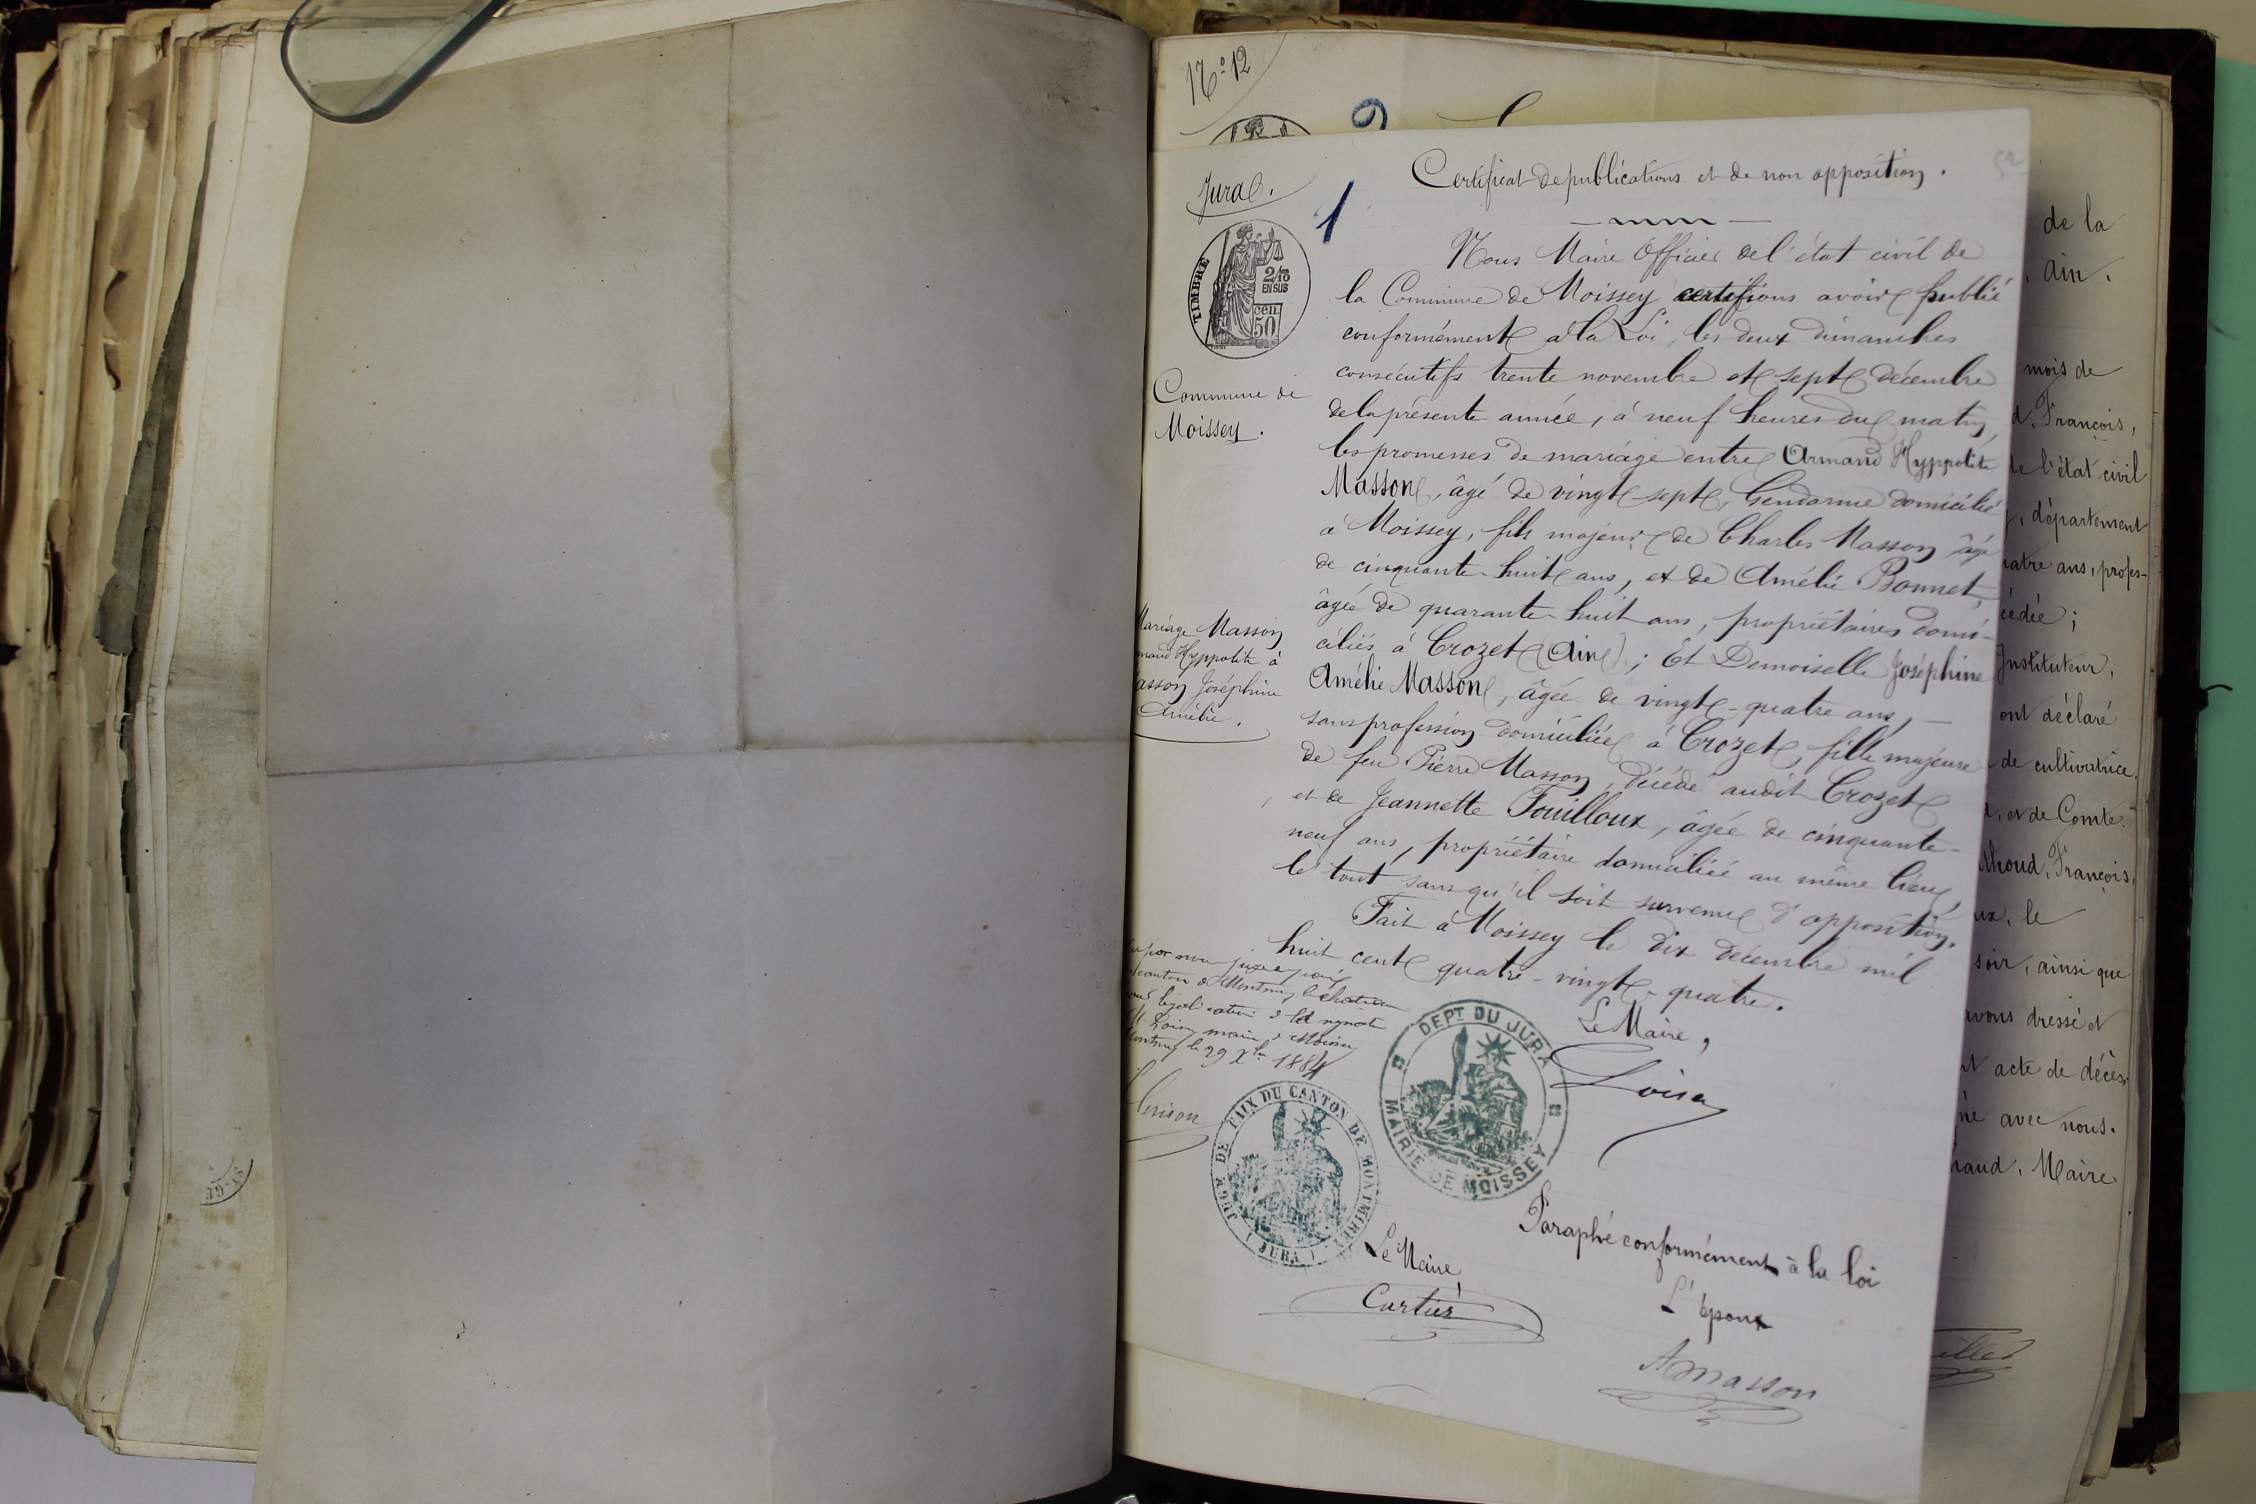 N.º 12
Jura.
TIMBRE
2/10
EN SUS
cen.
50
Commune de
Moissey.
1
Certificat de publications et de non opposition.
Nous Maire Officier de l'état civil de
la Commune de Moissey certifions avoir publié
conformément à la Loi, les deux dimanches
consécutifs trente novembre et sept décembre
de la présente année, à neuf heures du matin,
les promesses de mariage entre Armand Hyppolite
Masson, âgé de vingt sept, Gendarme domicilié
à Moissey, fils majeur de Charles Masson âgé
de cinquante-huit ans, et de Amélie Bonnet,
âgée de quarante-huit ans, propriétaires domi-
ciliés à Crozet (Ain); Et Demoiselle Joséphine
Amélie Masson, âgée de vingt-quatre ans, —
sans profession domiciliée à Crozet, fille majeure
de feu Pierre Masson, décédé audit Crozet
, et de Jeannette Fouilloux, âgée de cinquante-
neuf ans, propriétaire domiciliée au même lieu,
le tout sans qu'il soit survenu d'opposition.
Fait à Moissey le dix décembre mil
huit cent quatre-vingt-quatre.
Le Maire,
DEPT DU JURA
MAIRIE DE MOISSEY
Mariage Masson
mand Hyppolite à
asson Joséphine
Amélie.
par nous juge de paix
canton de Montmirey le château
légalisation de la signature
maire de Moissey
le 29 Xbre 1884
JUGE DE PAIX DU CANTON DE MONTMIREY
(JURA)
Le Maire,
Cartier
Paraphé conformément à la loi
L'époux
AMasson
de la
Ain.
mois de
d, François,
de l'état civil
, département
uatre ans, profes-
cédée;
Instituteur,
ont déclaré
de cultivatrice,
, et de Comte
Thoud, François,
ux, le
soir, ainsi que
avons dressé et
nt acte de décès
né avec nous.
haud, Maire